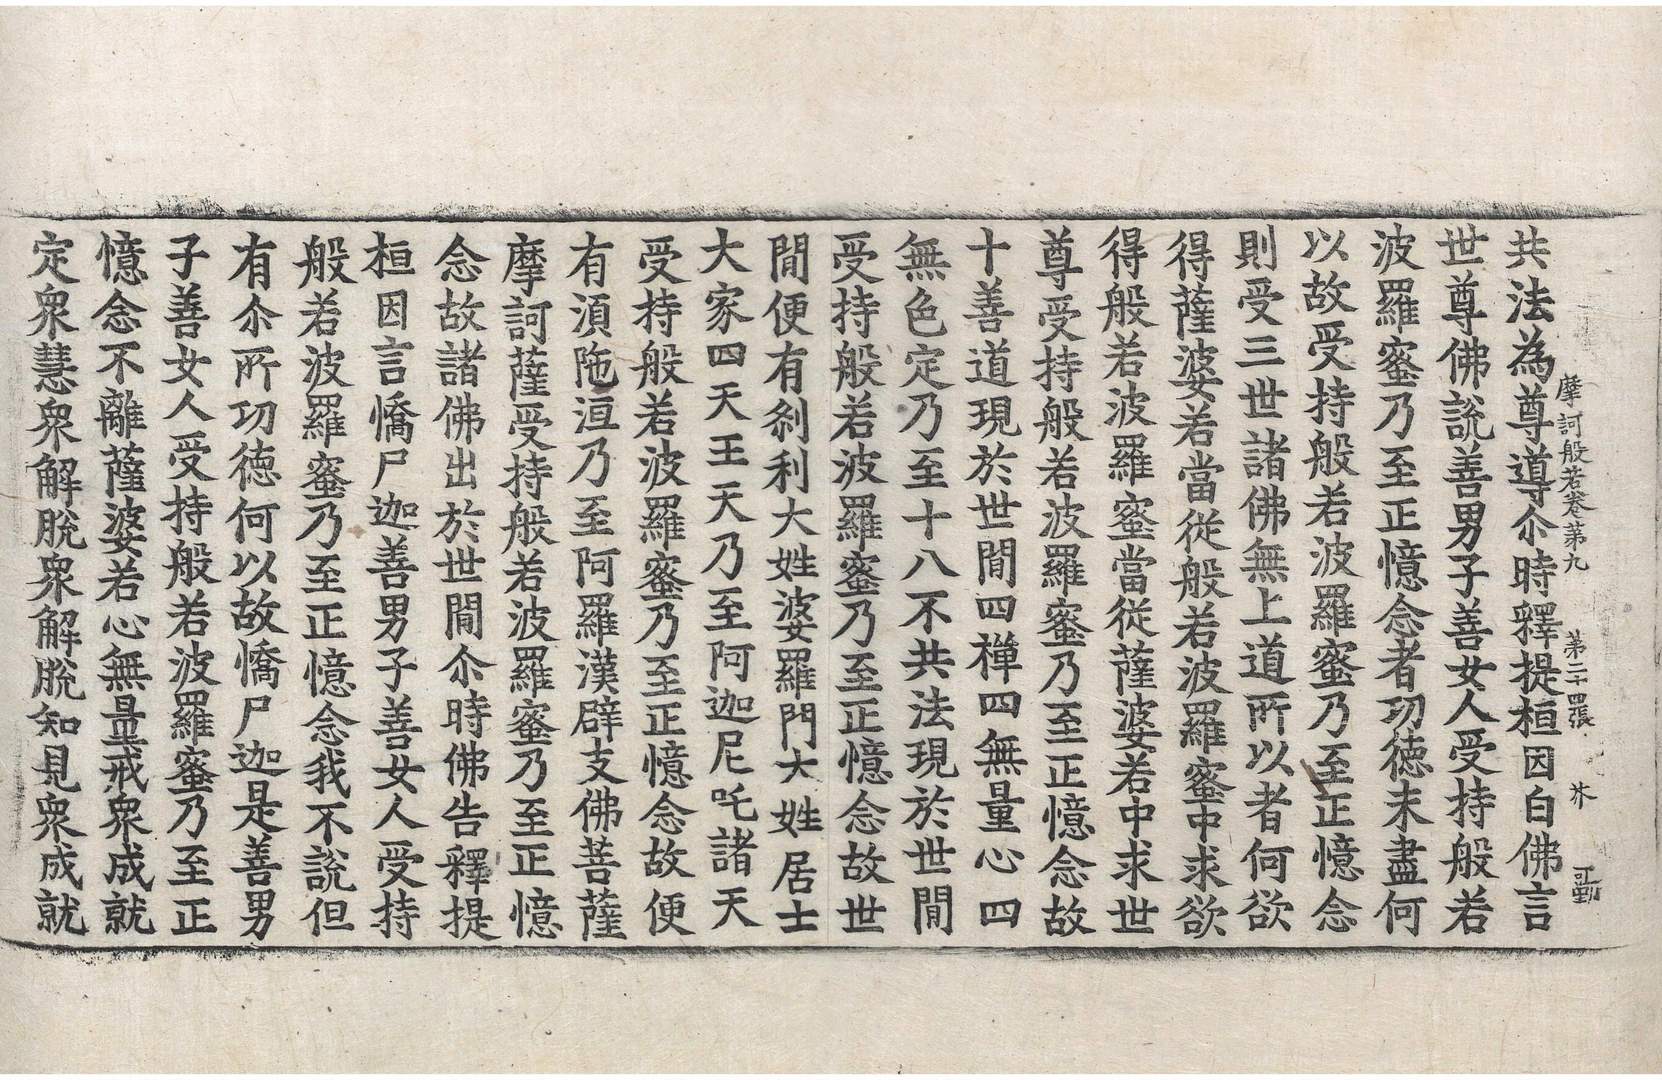 摩訶般若卷第九　第二十四張　芥
共法為尊導尒時釋提桓因白佛言
世尊佛說善男子善女人受持般若
波羅蜜乃至正憶念者功徳未盡何
以故受持般若波羅蜜乃至正憶念
則受三世諸佛無上道所以者何欲
得薩婆若當從般若波羅蜜中求欲
得般若波羅蜜當從薩婆若中求世
尊受持般若波羅蜜乃至正憶念故
十善道現於世間四禪四無量心四
無色定乃至十八不共法現於世間
受持般若波羅蜜乃至正憶念故世
間便有剎利大姓婆羅門大姓居士
大家四天王天乃至阿迦尼吒諸天
受持般若波羅蜜乃至正憶念故便
有湏陁洹乃至阿羅漢辟支佛菩薩
摩訶薩受持般若波羅蜜乃至正憶
念故諸佛出於世間尒時佛告釋提
桓因言憍尸迦善男子善女人受持
般若波羅蜜乃至正憶念我不說但
有尒所功徳何以故憍尸迦是善男
子善女人受持般若波羅蜜乃至正
憶念不離薩婆若心無量戒衆成就
定衆慧衆解脫衆解脫知見衆成就